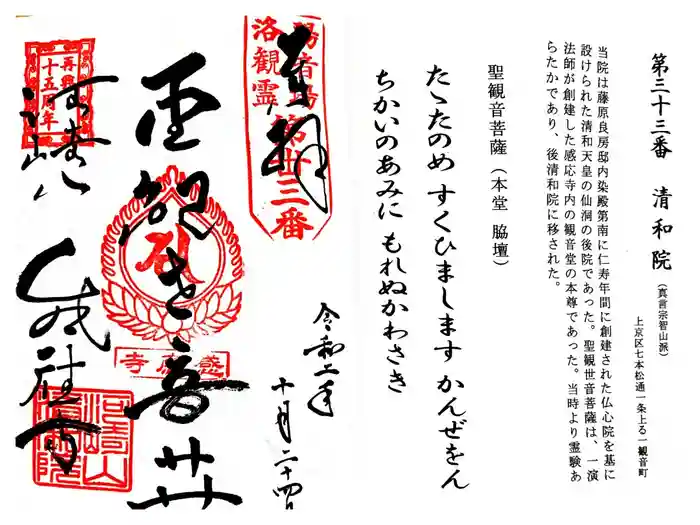 第三十三番 清和院(真言宗智山派)
上京区七本松通一条上る一観音町
当院は藤原良房邸内染殿第南に仁寿年間に創建された仏心院を基に
設けられた清和天皇の仙洞の後院であった。聖観世音菩薩は、一演
法師が創建した感応寺内の観音堂の本尊であった。当時より霊験あ
らたかであり、後清和院に移された。
聖観音菩薩(本堂 脇壇)
たゝたのめ すくひまします かんぜをん
ちかいのあみに もれぬかわさき
奉拝
洛陽観音霊場第卅三番
令和二年
十月二十四日
聖観世音菩薩
感應寺
再興
十五周年